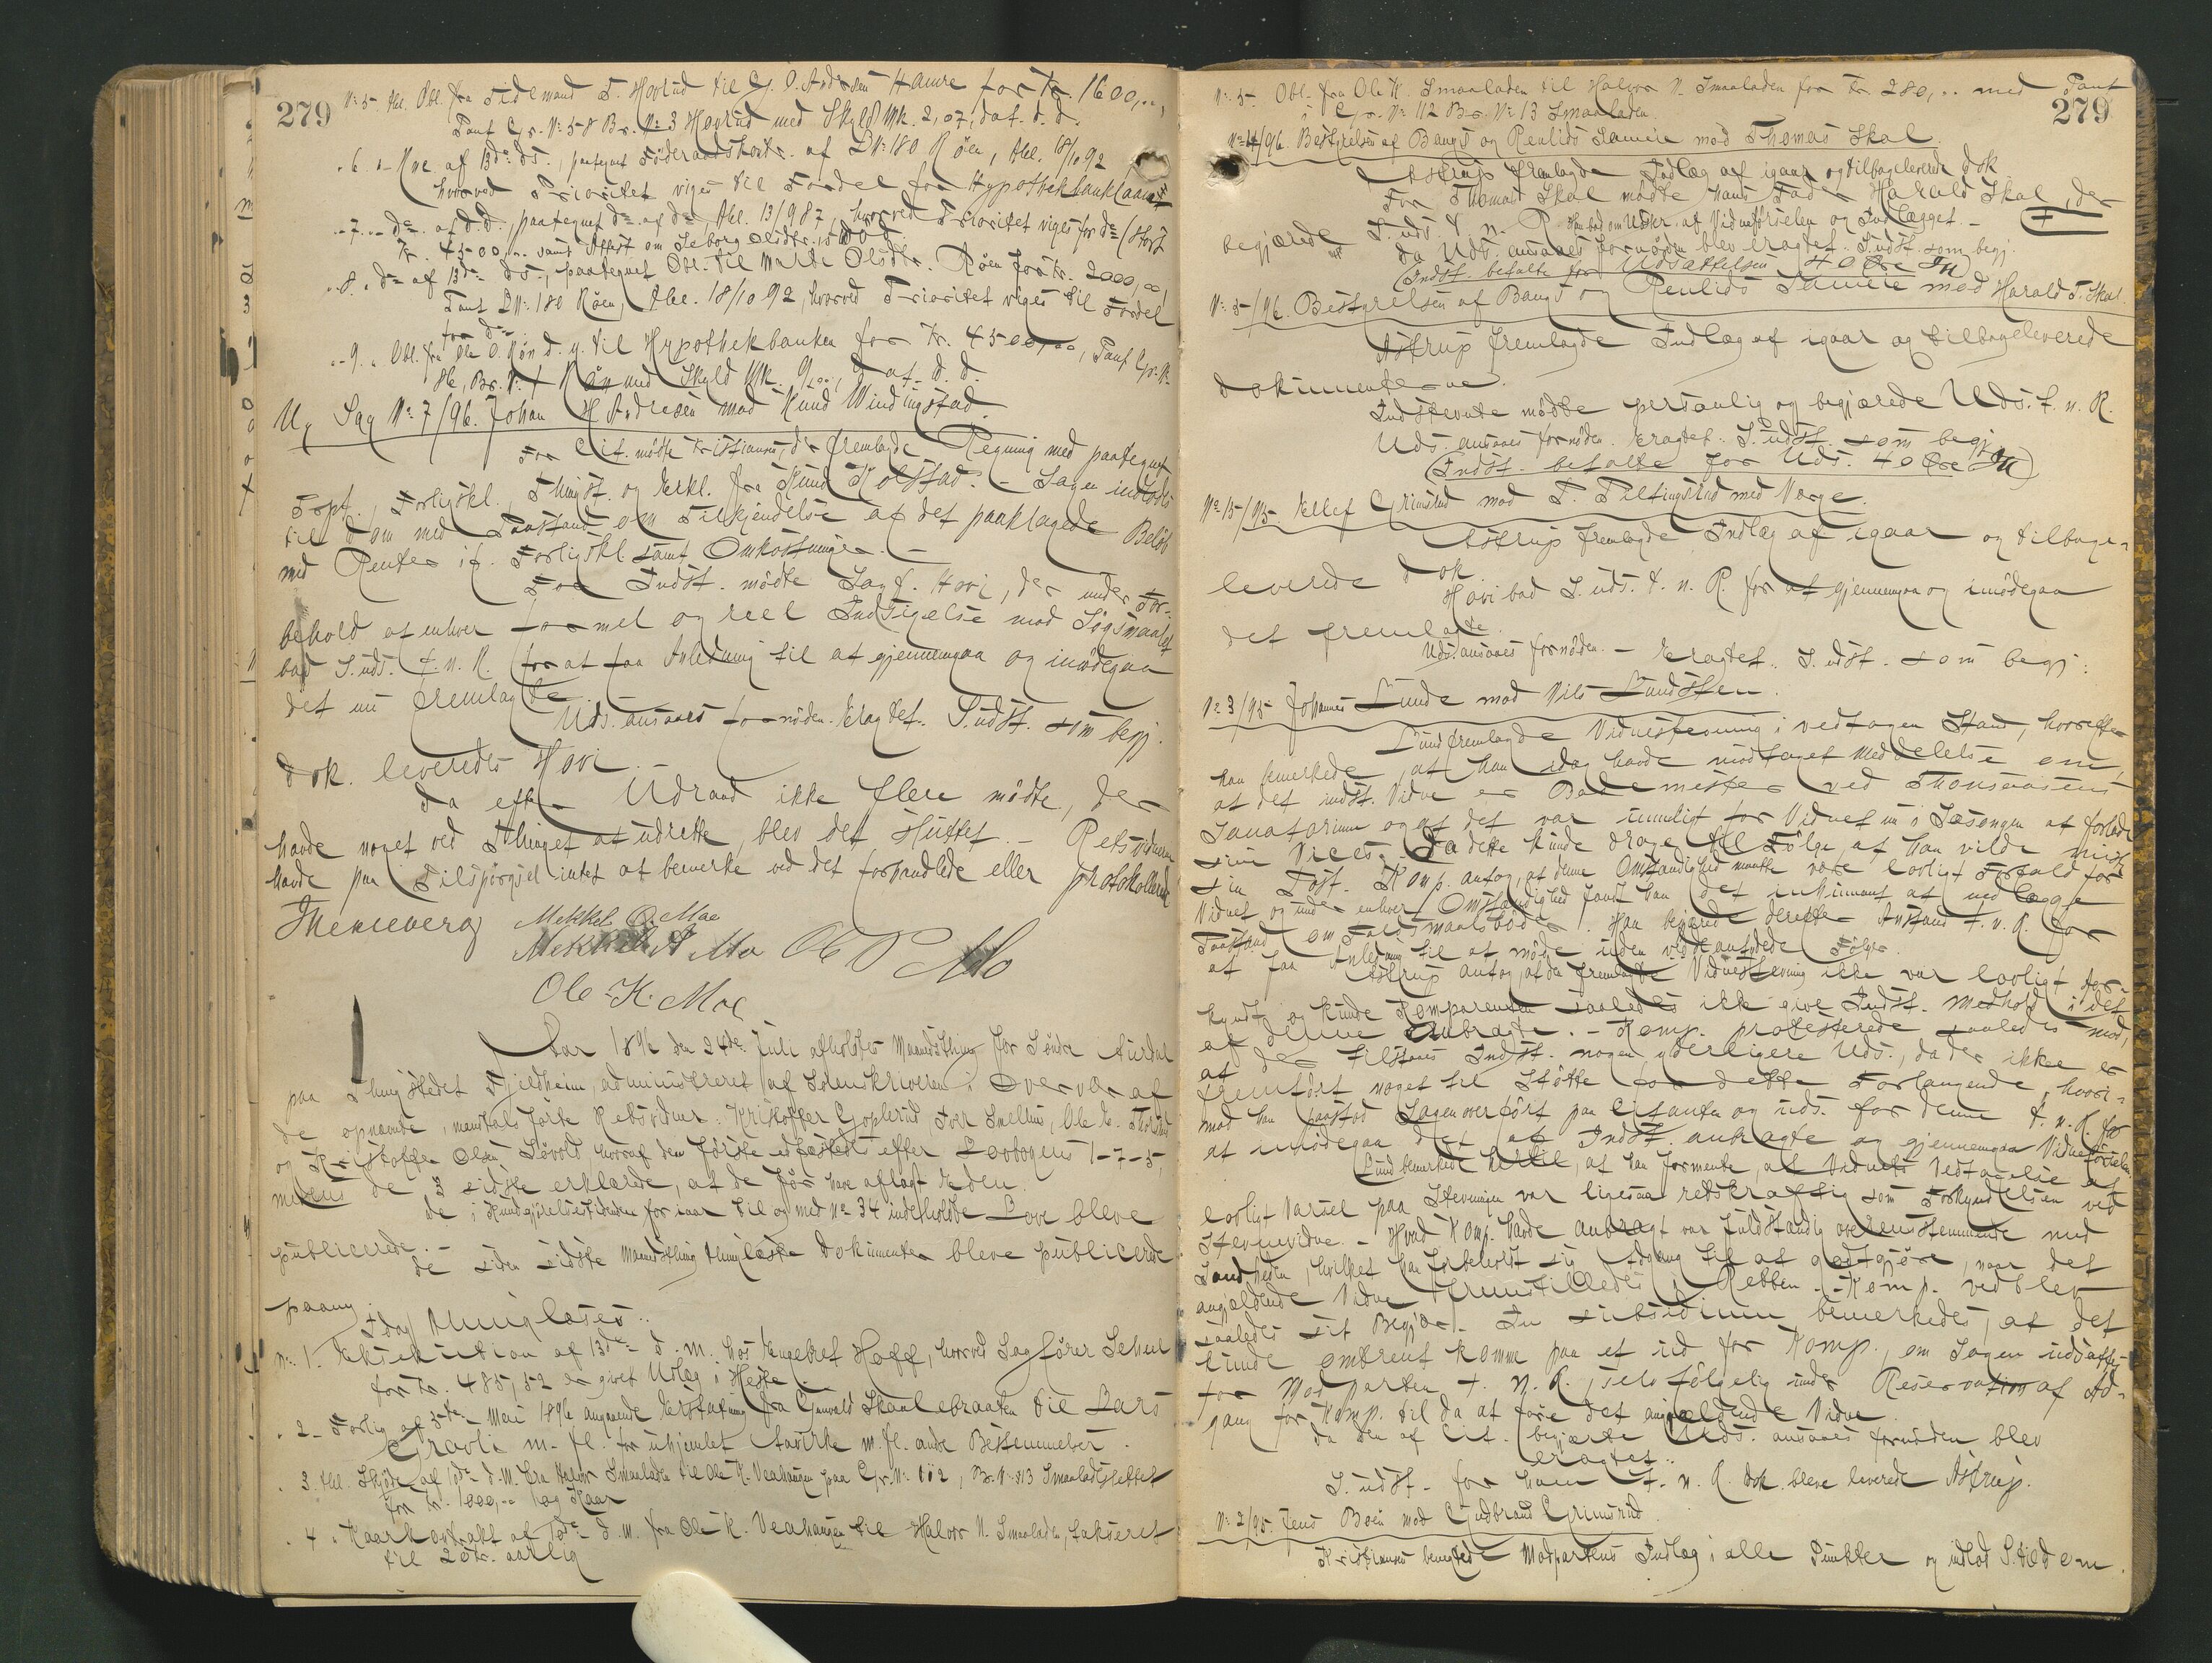 279
No 5. Abl. Obl. fra Tidemand T. Hovrud til G. O. Andersen Hamre for Kr. 1600,..,
Pant G.-No 58 Br.-No 3 Hovrud med Skyld Mk. 2,07, dat. d. d.
" 6. " Kve. af 13de ds., paategnet Föderaadskontr. af LNo 180 Röen, Abl. 18/10 92
hvorved Prioritet viges til Fordel for Hypothekbanklaanet
" 7. " do. af d. d., paategnet do. af do, Abl. 13/9 87, hvorved Prioritet viges for do (stort
Kr. 4500,.. samt Attest om Seborg Olsdtr.s Död
" 8. " do af 13de ds., paategnet Obl. til Marte Olsdtr. Röen for Kr. 2000,00,
Pant LNo 180 Röen, Abl. 18/10 92, hvorved Prioritet viges til Fordel
for do
" 9. " Obl. fra Ole O. Rön d. y. til Hypothekbanken for Kr. 4500,00, Pant G.-No
86, Br. No 1 Röen med Skyld Mk. 9,.., dat. d. d.
Ny Sag No 7/96. Johan H. Andresen mod Knud Windingstad.
For Cit. mödte Kristiansen, der fremlagde Regning med paategnet
Topt., Forligskl., Thingst. og Erkl. fra Knud Kolstad. - Sagen indlodes
til Dom med Paastand om Tilkjendelse af det paaklagede Belöb
med Renter if. Forligskl. samt Omkostninger. -
For Indst. mödte Sagf. Hovi, der under For-
behold af enhver formel og reel Indsigelse mod Sögsmaalet
bad S. uds. t. n. R. for at faa Anledning til at gjennemgaa og imödegaa
det nu fremlagte
Uds. ansaaes fornöden. Eragtet. S. udst. som begj.
Dok. leveredes Hovi. -
Da efter Udraab ikke flere mödte, der
havde noget ved Thinget at udrette, blev det sluttet. - Retsvidnerne
havde paa Tilspörgsel intet at bemerke ved det forhandlede eller protokollerede
Mekkel O. Moe
Mekkel A Moe Ole P Mo
Ole K. Moe
Aar 1896 den 24de Juli afholdtes Maanedsthing for Söndre Aurdal
paa Thingstedet Fjeldheim, administreret af Sorenskriveren i Overvær af
de opnævnte, mandtalsförte Retsvidner: Kristoffer Goplerud, Tore Snellius, Ole E. Thorsrud
og Kristoffer Olsen Sövold hvoraf den förste edfæstedes efter Lovbogens 1-7-5,
mens de 3 sidste erklærde, at de för have aflagt Eden.
De i Kundgjörelsestidenden for iaar til og med No 34 indeholdte Love bleve
publicerede. -
De siden sidste Maanedsthing thinglæste Dokumenter bleve publicerede
paany.
Idag thinglæses:
No 1. Eksekution af 13de d. M. hos Engebret Hoff, hvorved Sagförer Scheel
for Kr. 485,52 er givet Udlæg i Heste.
" 2 - Forlig af 5te Mai 1896 angaaende Erstatning fra Grunvald Skaalebraaten til Lars
Gravli m. fl. for uhjemlet Havirke m. fl. andre Bestemmelser.
" 3. Abl. Skjöde af 10de d. M. fra Halvor Smaaladen til Ole K. Veahaugen paa G.-No 112, Br. No 13 Smaaladsjettet
for Kr. 1000,.. og Kaar
" 4 " Kaarkontrakt af 10de d. M. fra Ole K. Veahaugen til Halvor N. Smaaladen, takseret
til 20 Kr. aarlig
279
No 5. Obl. fra Ole K. Smaaladen til Halvor N. Smaaladen for Kr. 280,.. med Pant
i G.-No 112 Br. No 13 Smaaladen.
No 4/96. Bestyrelsen af Bangs og Reulids Sameie mod Thomas Skal.
Astrup fremlagde Indlæg af igaar og tilbageleverede Dok
For Thomas Skal mödte hans Fader Harald Skal, der
begjærede S. uds. t. n. R. Han bad om Udskr. af Vidneförselen og Indlægget. -
Da Uds. ansaaes fornöden blev eragtet: S. udst. som begj.
(Indst. betalte for Udsættelsen 40 Öre JM)
No 5/96. Bestyrelsen af Bangs og Reulids Sameie mod Harald T. Skal.
Astrup fremlagde Indlæg af igaar og tilbageleverede
Dokumenterne.
Indstevnte mödte personlig og begjærede Uds. t. n. R.
Uds. ansaaes fornöden. Eragtet: S. udst. som begj.
(Indst. betalte for Uds. 40 Öre JM)
No 15/95. Ellef Grimsrud mod T. Tiltingsrud med Værge.
Astrup fremlagde Indlæg af igaar og tilbage-
leverede Dok.
Hovi bad S. uds. t. n. R. for at gjennemgaa og imödegaa
det fremlagte.
Uds. ansaaes fornöden. - Eragtet: S. udst. som begj:
No 3/95 Johannes Lunde mod Nils Lundsten.
Lund fremlagde Vidnestevning i vedtagen Stand, hvorefter
han bemerkede, at han idag havde modtaget Meddelelse om,
at det indst. Vidne er Bademester ved Thonsaasens
Sanatorium og at det var umuligt for Vidnet nu i Sæsongen at forlade
sin Vices. Da dette kunde drage til Fölge, at han vilde miste
sin Post. Komp. antog, at denne Omstændighed maatte være lovligt Forfald for
Vidnet og under enhver Omstændighed fandt han det inhumant at nedlægge
Paastand om Faldsmaalsböder. Han begjærede derefter Anstand t. n. R. for
at faa Anledning til at möde uden vidtantydede Fölger.
Astrup antog, at den fremlagte Vidnestevning ikke var lovligt for-
kyndt og kunde Komparenten saaledes ikke give Indst. Medhold i det
af denne Anbragte. - Komp. protesterede saaledes mod,
at der tilstaaes Indst. nogen yderligere Uds., da der ikke er
fremfört noget til Stötte for dette Forlangende, hvori-
mod han paastod Sagen overfört paa Citanten og uds. for denne t. n. R. for
at imödegaa det af Indst. anbragte og gjennemgaa Vidneförselen.
Lund bemerkede hertil, at han formente, at Vidnets Vedtagelse af
lovligt Varsel paa Stevningen var ligesaa retskraftig som Forkyndelsen ved
Stevnevidne. - Hvad Komp. havde anbragt var fuldstændig overensstemmende med
Sandheden, hvilket han forbeholdt sig Adgang til at godtgjöre, naar det
angjældende Vidne fremstilledes i Retten. - Komp. vedblev
saaledes sit Begjær. In subsidium bemerkedes, at det
kunde omtrent komme paa et ud for Komp., om Sagen udsattes
for Modparten t. n. R., selvfölgelig under Reservation af Ad-
gang for Komp. til da at före det angjældende Vidne.
Da den af Cit. begjærte Uds. ansaaes fornöden blev
eragtet:
S. udst. for ham t. n. R. Dok. bleve leverede Astrup.
No 2/95. Jens Boen mod Gudbrand Grimsrud.
Kristiansen benegtede Modpartens Indlæg i alle Punkter og indlod S. til Dom.